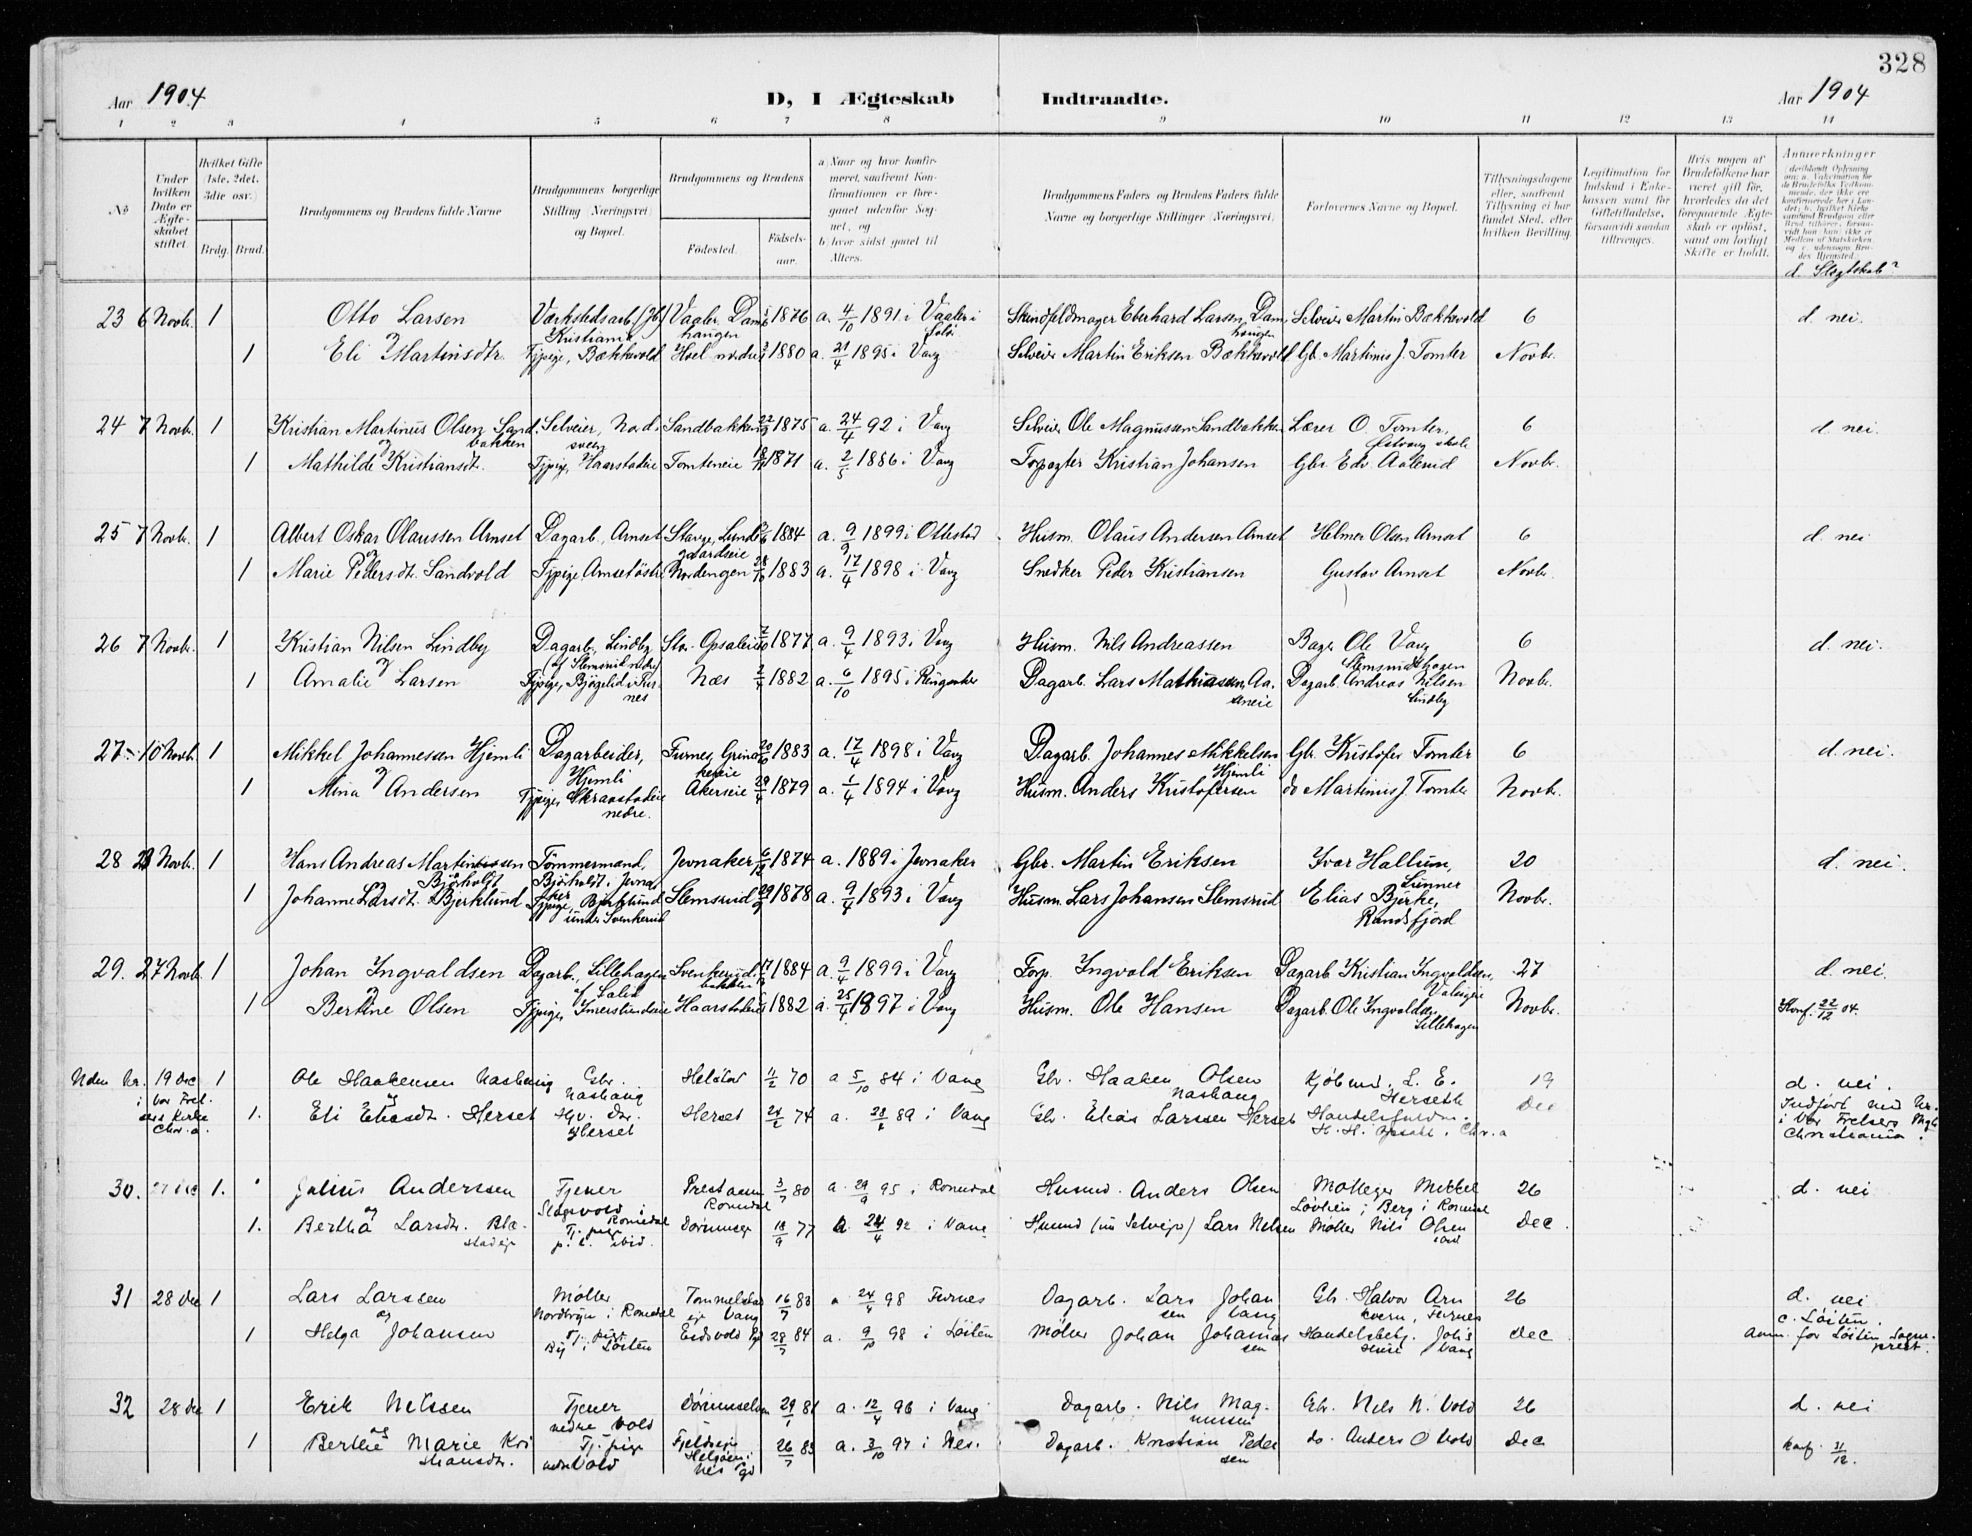 328
Aar 1904
D, I Ægteskab Indtraadte.
Aar 1904
1 2 3 4 5 6 7 8 9 10 11 12 13 14
No
Under hvilken Dato er Ægteskabet stiftet.
Hvilket Gifte (1ste, 2det, 3die osv.)
Brdg. Brud.
Brudgommens og Brudens fulde Navne
Brudgommens borgerlige Stilling (Næringsvei) og Bopæl.
Brudgommens og Brudens
Fødested. Fødselsaar.
a) Naar og hvor konfirmeret, saafremt Konfirmationen er foregaaet udenfor Sognet, og
b) hvor sidst gaaet til Alters.
Brudgommens Faders og Brudens Faders fulde Navne og borgerlige Stillinger (Næringsvei).
Forlovernes Navne og Bopæl.
Tillysningsdagene eller, saafremt Tillysning ei har fundet Sted, efter hvilken Bevilling.
Legitimation for Indskud i Enkekassen samt for Giftetilladelse, forsaavidt saadan tiltrænges.
Hvis nogen af Brudefolkene har været gift før, hvorledes da det foregaaende Ægteskab er opløst, samt om lovligt Skifte er holdt.
Anmerkninger
d. Slegtskab?
23 6 Novbr. 1 Otto Larsen Vaaler 1876 a. 4/10 1891 i Vaaler i Solør Skindfeldmager Eberhard Larsen, Damhaugen Selveier Martin Bækkevold 6 d. nei.
og
1 Eli Martinsdtr. Tjpige, Bækkevold 1880 a. 21/4 1895 i Vang Selveier Martin Eriksen Bækkevold Gb. Martinis J. Tomter Novbr.
24 7 Novbr. 1 Kristian Martinus Olsen Sandbakken Selveier, Nordsveen Sandbakken 1875 a. 24/4 92 i Vang Selveier Ole Magnussen Sandbakken Lærer O. Tomter, 6 d. nei.
og
1 Mathilde Kristiansdt. Tjpige, Haarstadeie Tomteneie 1871 a. 2/5 1886 i Vang Kristian Johansen Gbr. Edv. Aalerud Novbr.
25 7 Novbr. 1 Albert Oskar Olaussen Arnset Dagarb., Arnset Stange, 1884 a. 9/9 1899 i Ottestad Husm. Olaus Andersen Arnset Helmer Olsen Arnset 6 d. nei
og
1 Marie Pedersdt. Sandvold Tjpige Arnset østre Nordengen 1883 a. 17/4 1898 i Vang Snedker Peder Kristiansen Gustav Arnset Novbr.
26 7 Novbr. 1 Kristian Nilsen Lindby Dagarb. Lindby Stor-Opsaleie 1877 a. 9/4 1893 i Vang Husm. Nils Andreassen Bager Ole Vang Slemsrudhagen 6 d. nei.
og
1 Amalie Larsen Tjpige, Furnes Næs 2/4 1882 a. 6/10 1895 i Ringsaker Dagarb. Lars Mathiassen, Dagarb. Andreas Nilsen Lindby Novbr.
27 10 Novbr. 1 Mikkel Johannesen Hjemli Dagarbeider, Hjemli Furnes, 1883 a. 17/4 1898 i Vang Dagarb. Johannes Mikkelsen Hjemli Gb. Kristofer Tomter 6 d. nei.
og
1 Mina Andersen Tjpige, Skraastadeie nedre. Akerseie 29/4 1879 a. 1/4 1894 i Vang Husm. Anders Kristofersen do Martinus J. Tomter Novbr.
28 23 Novbr. 1 Hans Andreas Martinsen Bjørholdt Tømmermand, Bjørholdt, Jevnaker Jevnaker 6/12 1874 a. 1889 i Jevnaker Gbr. Martin Eriksen Ivar Hallum, Lunner 20 d. nei.
og
1 Johanne Larsdt. Bjerklund Tjpige, Bjerklund under Svenkerud Slemsrud 29/9 1878 a. 9/4 1893 i Vang Husm. Lars Johansen Slemsrud Elias Bjerke, Randsfjord Novbr.
29. 27 Novbr. 1 Johan Ingvaldsen Dagarb., Lillehagen Svenkerudbakken 1884 a. 9/4 1899 i Vang Torp. Ingvald Eriksen Dagarb. Kristian Ingvaldsen, 27 d. nei.
og
1 Bertine Olsen Tjpige, Haarstadeie 1882 a. 25/4 1897 i Vang Husm. Ole Hansen Dagarb. Ole Ingvaldsen Lillehagen Novbr. Konf. 22/12 04.
Uden Nr. 19 Dec 1 Ole Haakensen Nashaug Gbr. Nashaug Helstad 11/2 70 a 5/10 84 i Vang Gbr. Haaken Olsen Nashaug Kjøbmd. L. E. Herseth 19 d. nei.
i Vor Frelsers Kirke Chr.a. og
1. Eli Eliasdt. Herset Herset Herset 24/2 74 a. 89 i Vang Gbr. Elias Larssen Herset H. H. Opsahl, Chr.a Dec Indført med Nr. i Vor Frelsers Mgh. Christiania.
30. 27 Dec 1. Julius Anderssen Tjener Slagsvold i Romedal Romedal 3/7 80 a 29/9 95 i Romedal Husmd. Anders Olsen Løvlien i Berg i Romedal 26 d. nei
og
1. Bertha Larsdt. Blæstadeje Tj. pige p. t. ibid. 18/9 77 a 24/4 92 i Vang Husmd (nu Selvejer) Lars Nilsen Møller Nils Olsen ibid Dec.
31 28 Dec 1 Lars Larssen Møller i Romedal Tommelstad eje Vang 16/7 83 a 24/4 98 Furnes Dagarb. Lars Johansen Vang Gb. Halvor Arnkvern, Furnes 26 d. nei
og c. Løiten.
1 Helga Johansen Tj. pige By i Løiten Eidsvold 28/7 84 a. 9/10 98 i Løiten Møller Johan Johansen Handelsbetj. Vang Dec Anm. for Løiten Sogneprest.
32 28 Dec 1 Erik Nilssen Tjener nedre Vold 29/1 81 a. 12/4 96 i Vang Dagarb. Nils Magnussen Gbr. Nils N. Vold 26 d. nei
og
1 Berthe Marie Kristiansdtr. Tj. pige nedre Vold Fjeldseje Helgøen i Nes 26/7 83 a. 3/10 97 i Nes. Dagarb. Kristian Pedersen do. Anders O Vold Dec Konf. 31/12.